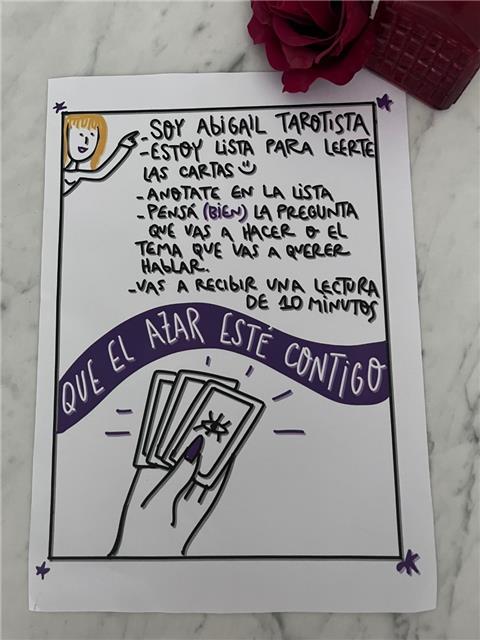 - SOY ABIGAIL TAROTISTA
- ESTOY LISTA PARA LEERTE
LAS CARTAS
- ANOTATE EN LA LISTA
- PENSÁ (BIEN) LA PREGUNTA
QUE VAS A HACER O EL
TEMA QUE VAS A QUERER
HABLAR.
- VAS A RECIBIR UNA LECTURA
DE 10 MINUTOS
QUE EL AZAR ESTÉ CONTIGO